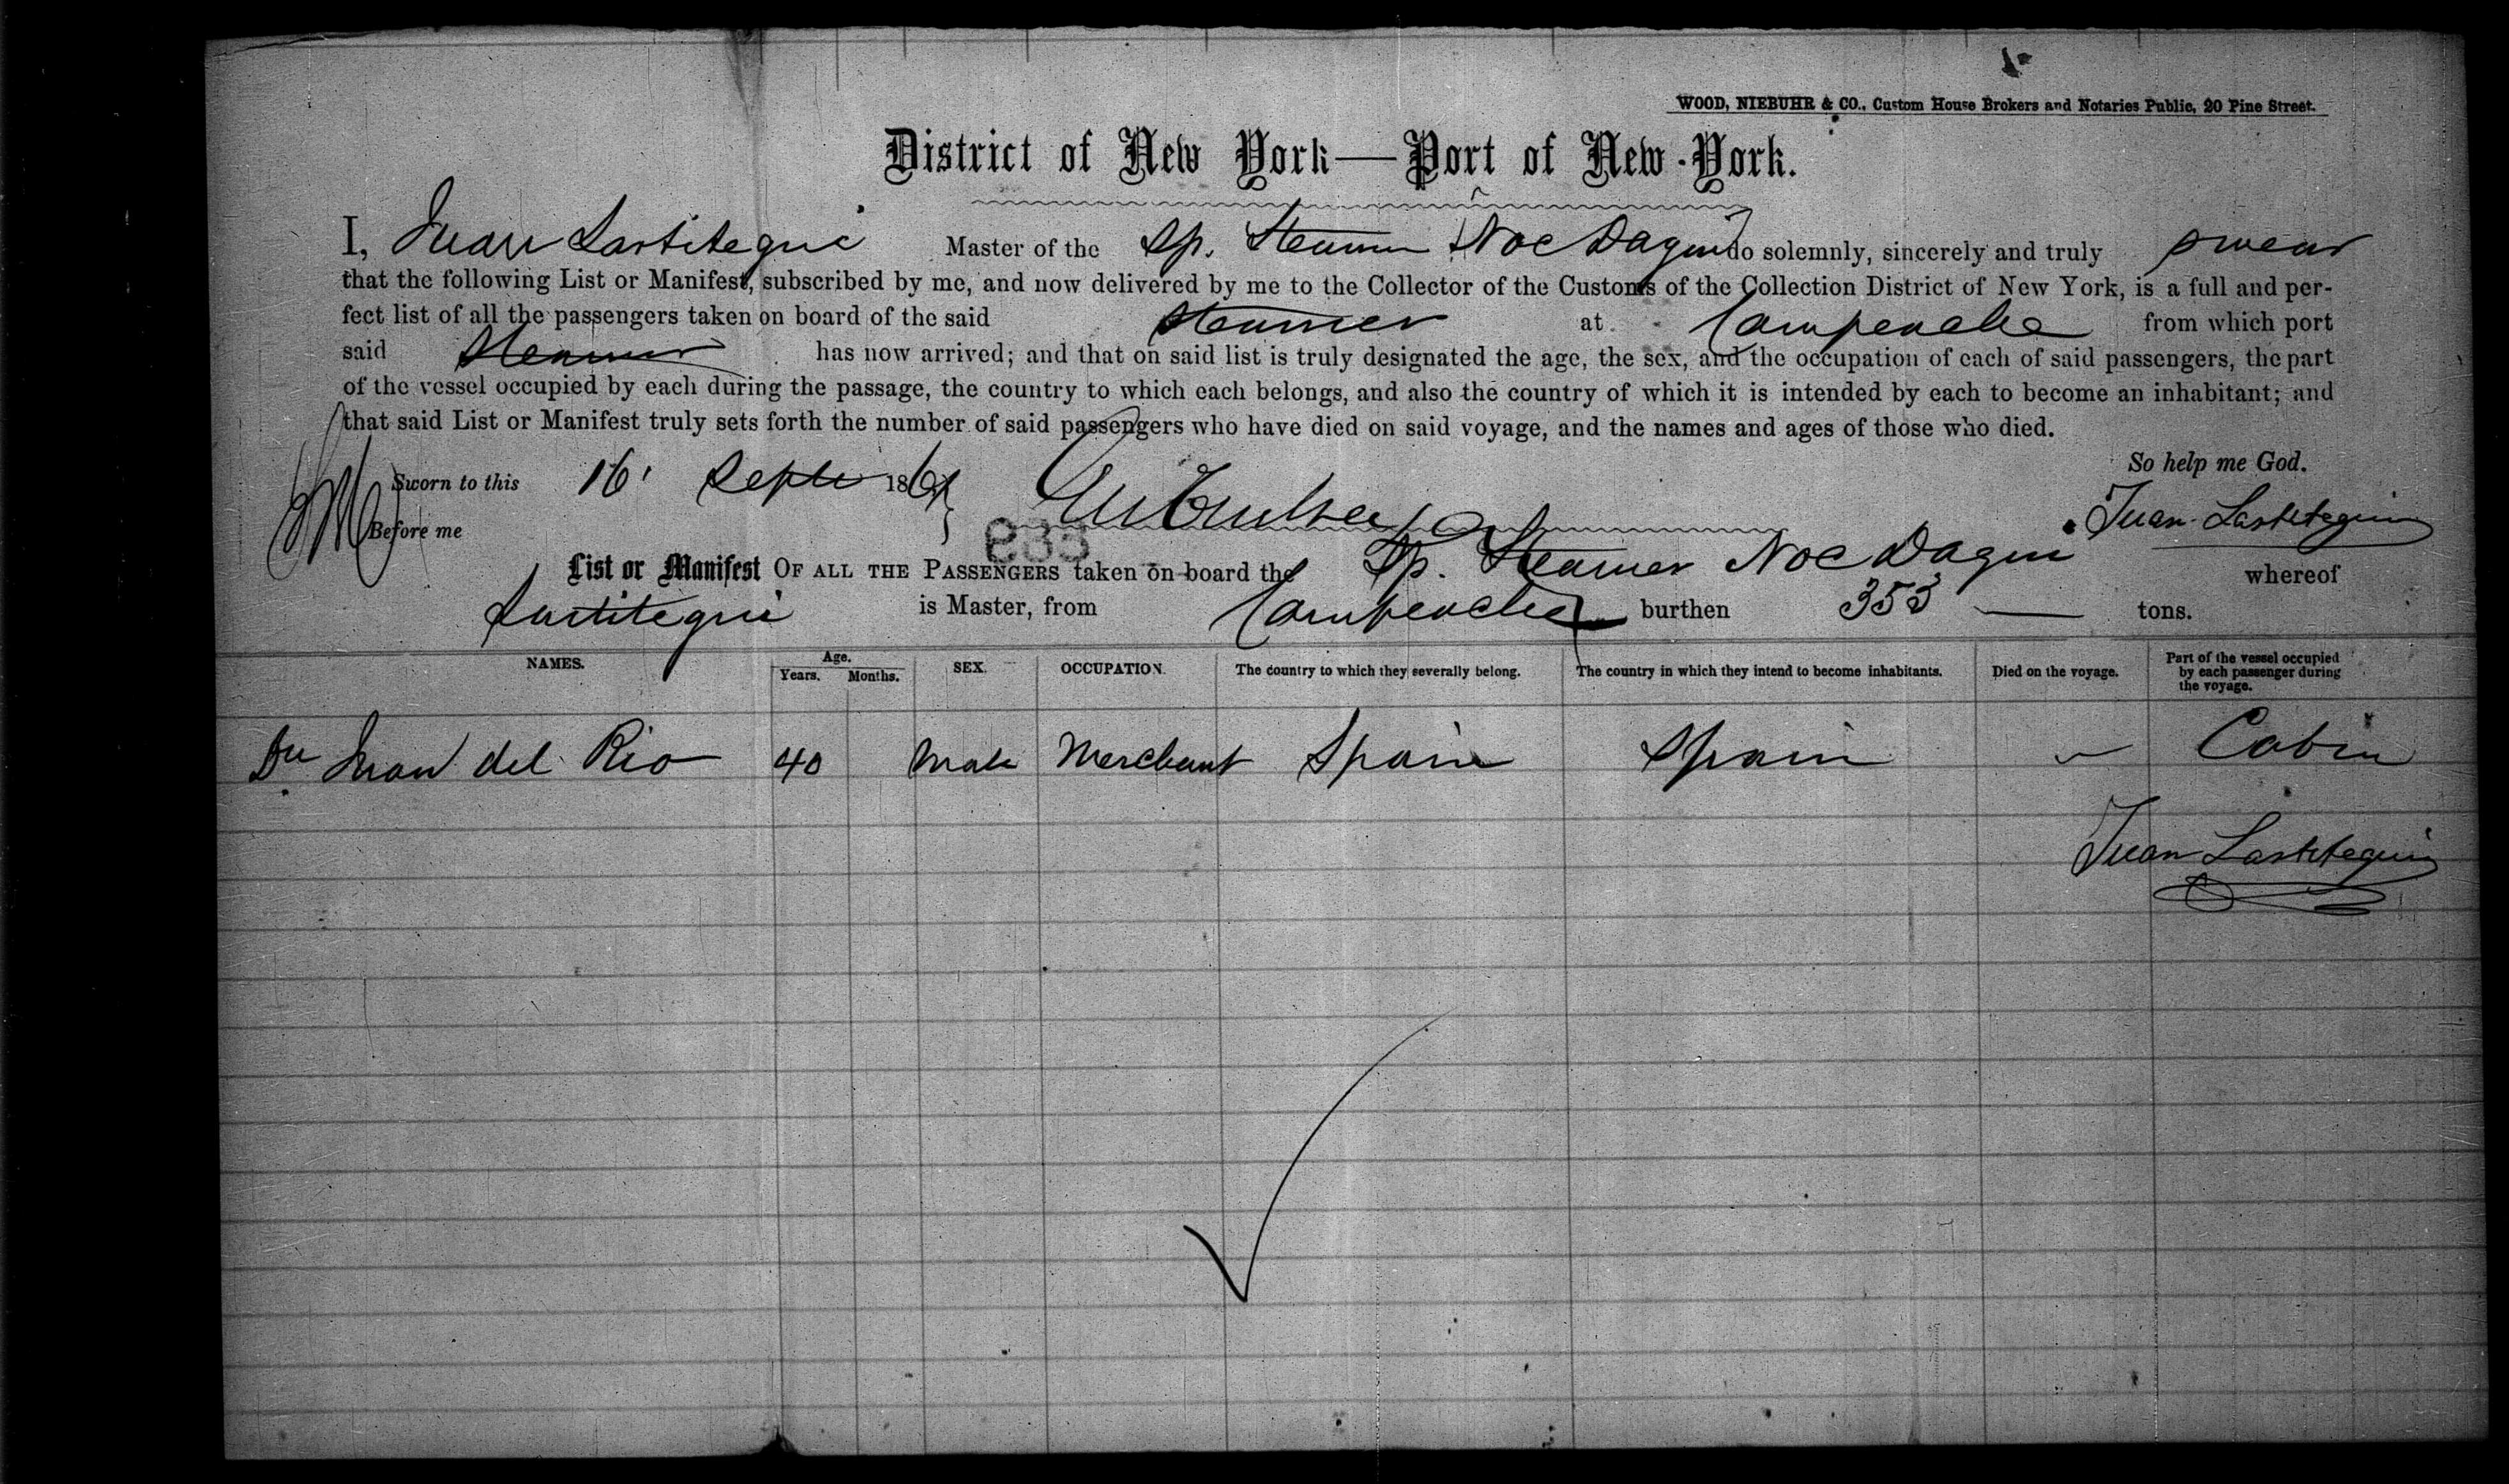 WOOD, NIEBUHR & CO., Custom House Brokers and Notaries Public, 20 Pine Street.
District of New York—Port of New-York.
I, Juan Lartitegui Master of the Sp. Steamer Noc Dagui do solemnly, sincerely and truly swear
that the following List or Manifest, subscribed by me, and now delivered by me to the Collector of the Customs of the Collection District of New York, is a full and per-
fect list of all the passengers taken on board of the said Steamer at Campeache from which port
said Steamer has now arrived; and that on said list is truly designated the age, the sex, and the occupation of each of said passengers, the part
of the vessel occupied by each during the passage, the country to which each belongs, and also the country of which it is intended by each to become an inhabitant; and
that said List or Manifest truly sets forth the number of said passengers who have died on said voyage, and the names and ages of those who died.
So help me God.
Sworn to this 16 Septr 186
Juan Lartitegui
Before me
List or Manifest OF ALL THE PASSENGERS taken on board the Sp. Steamer Noc Dagui whereof
Lartitegui is Master, from Campeache burthen 353 — tons.
NAMES. Age. Years. Months. SEX. OCCUPATION. The country to which they severally belong. The country in which they intend to become inhabitants. Died on the voyage. Part of the vessel occupied by each passenger during the voyage.
Dn Juan del Rio 40 Male Merchant Spain Spain – Cabin
Juan Lartitegui